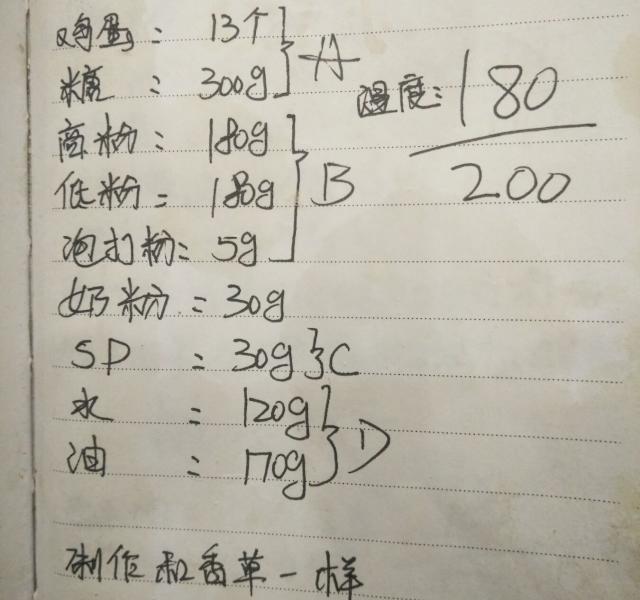 鸡蛋: 13个 } A
糖: 300g
温度: 180/200
高粉: 180g
低粉: 180g } B
泡打粉: 5g
奶粉: 30g
SP: 30g } C
水: 120g
油: 170g } D
制作和香草一样